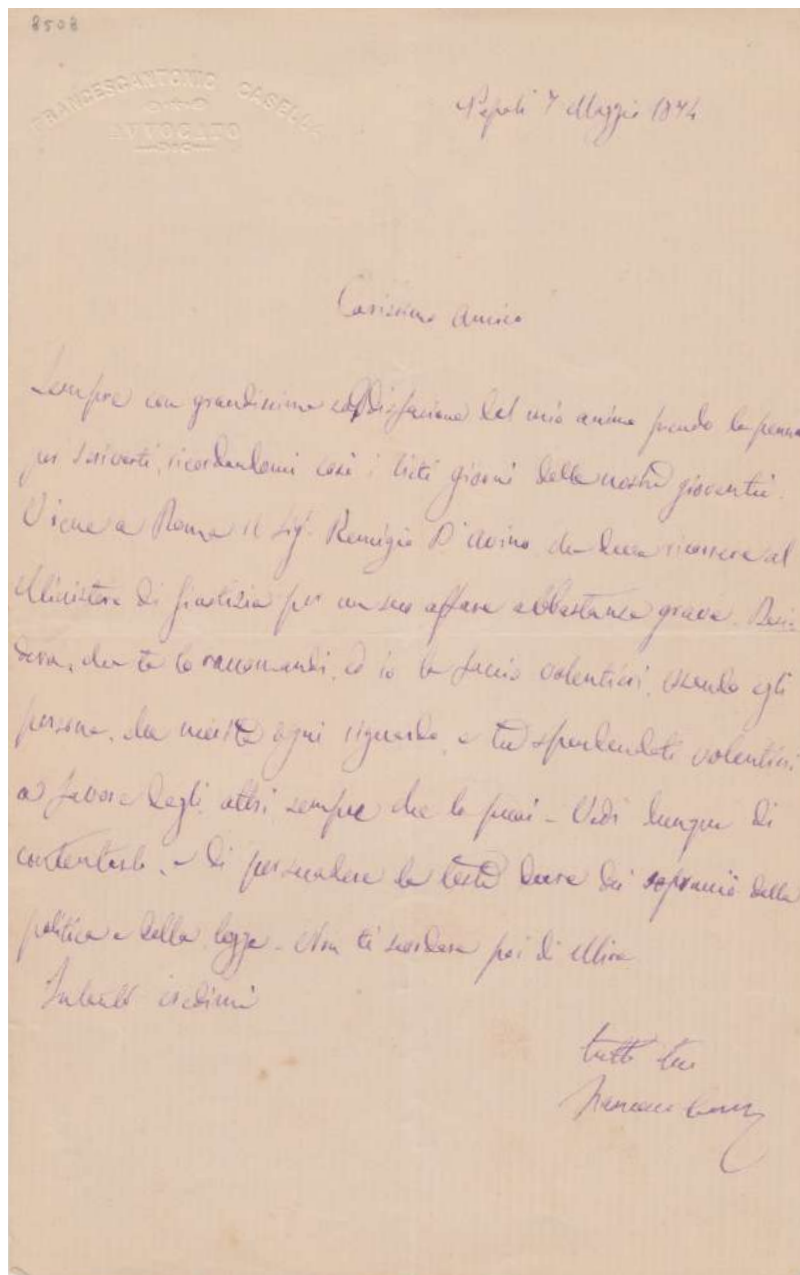 8508
FRANCESCANTONIO CASELLA
AVVOCATO
Napoli 7 Maggio 1874
Carissimo amico
Sempre con grandissima soddisfazione del mio animo prendo la penna
per scriverti, ricordandomi così i lieti giorni della nostra gioventù.
Viene a Roma il Sig. Remigio D'Avino che deve ricorrere al
Ministero di Giustizia per un suo affare abbastanza grave. Desi-
dera, che te lo raccomandi, ed io lo faccio volentieri, essendo egli
persona, che merita ogni riguardo, e tu spendendoti volentieri
a favore degli altri sempre che lo puoi - Vedi dunque di
contentarlo, e di persuadere le teste dure dei della
politica e della legge. Non ti scordare poi di
Intanto credimi
tutto tuo